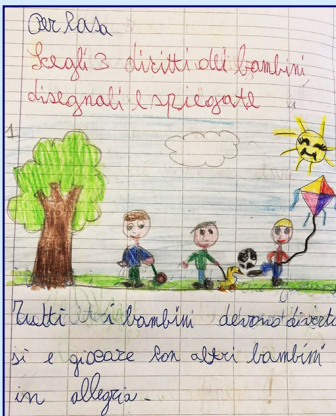 Per casa
Scegli 3 diritti dei bambini,
disegnali e spiegate
1
Tutti i bambini devono diverti
si e giocare con altri bambini
in allegria.